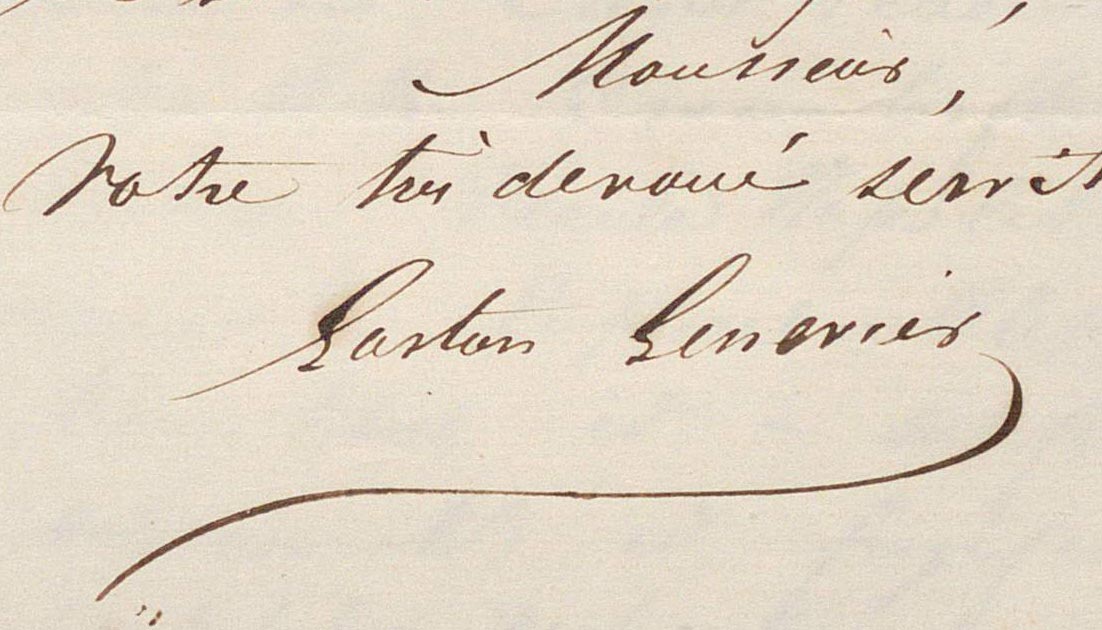 Monsieur,
Votre très dévoué servit
Gaston Genevier